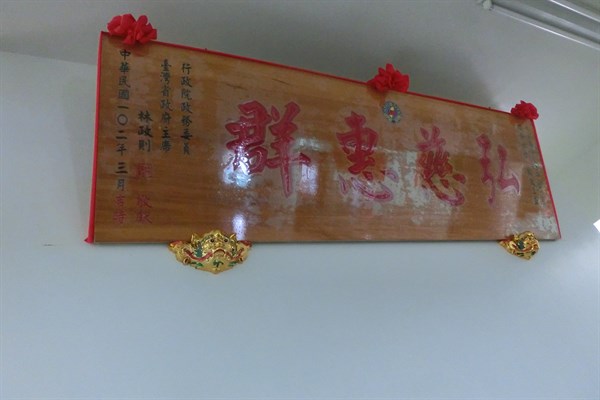 弘慈惠群
行政院政務委員
臺灣省政府主席
林政則 敬 獻
中華民國一〇二年三月吉時